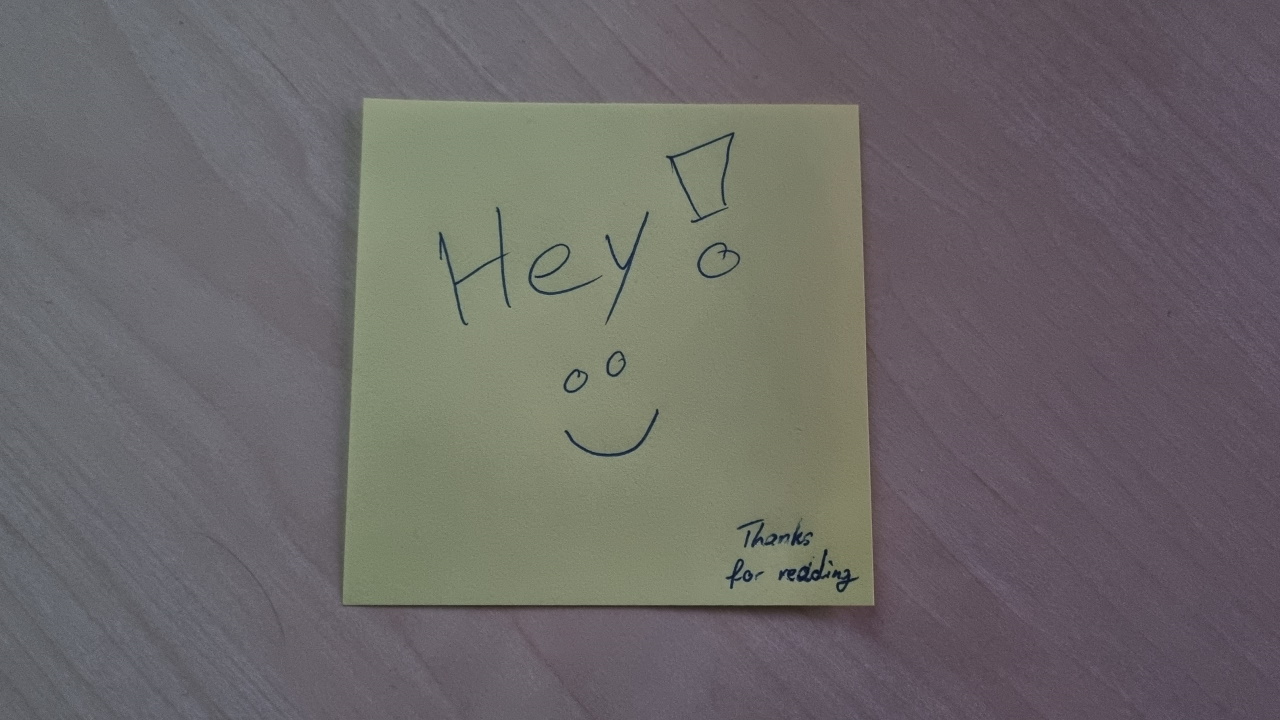 Hey!
Thanks
for reading